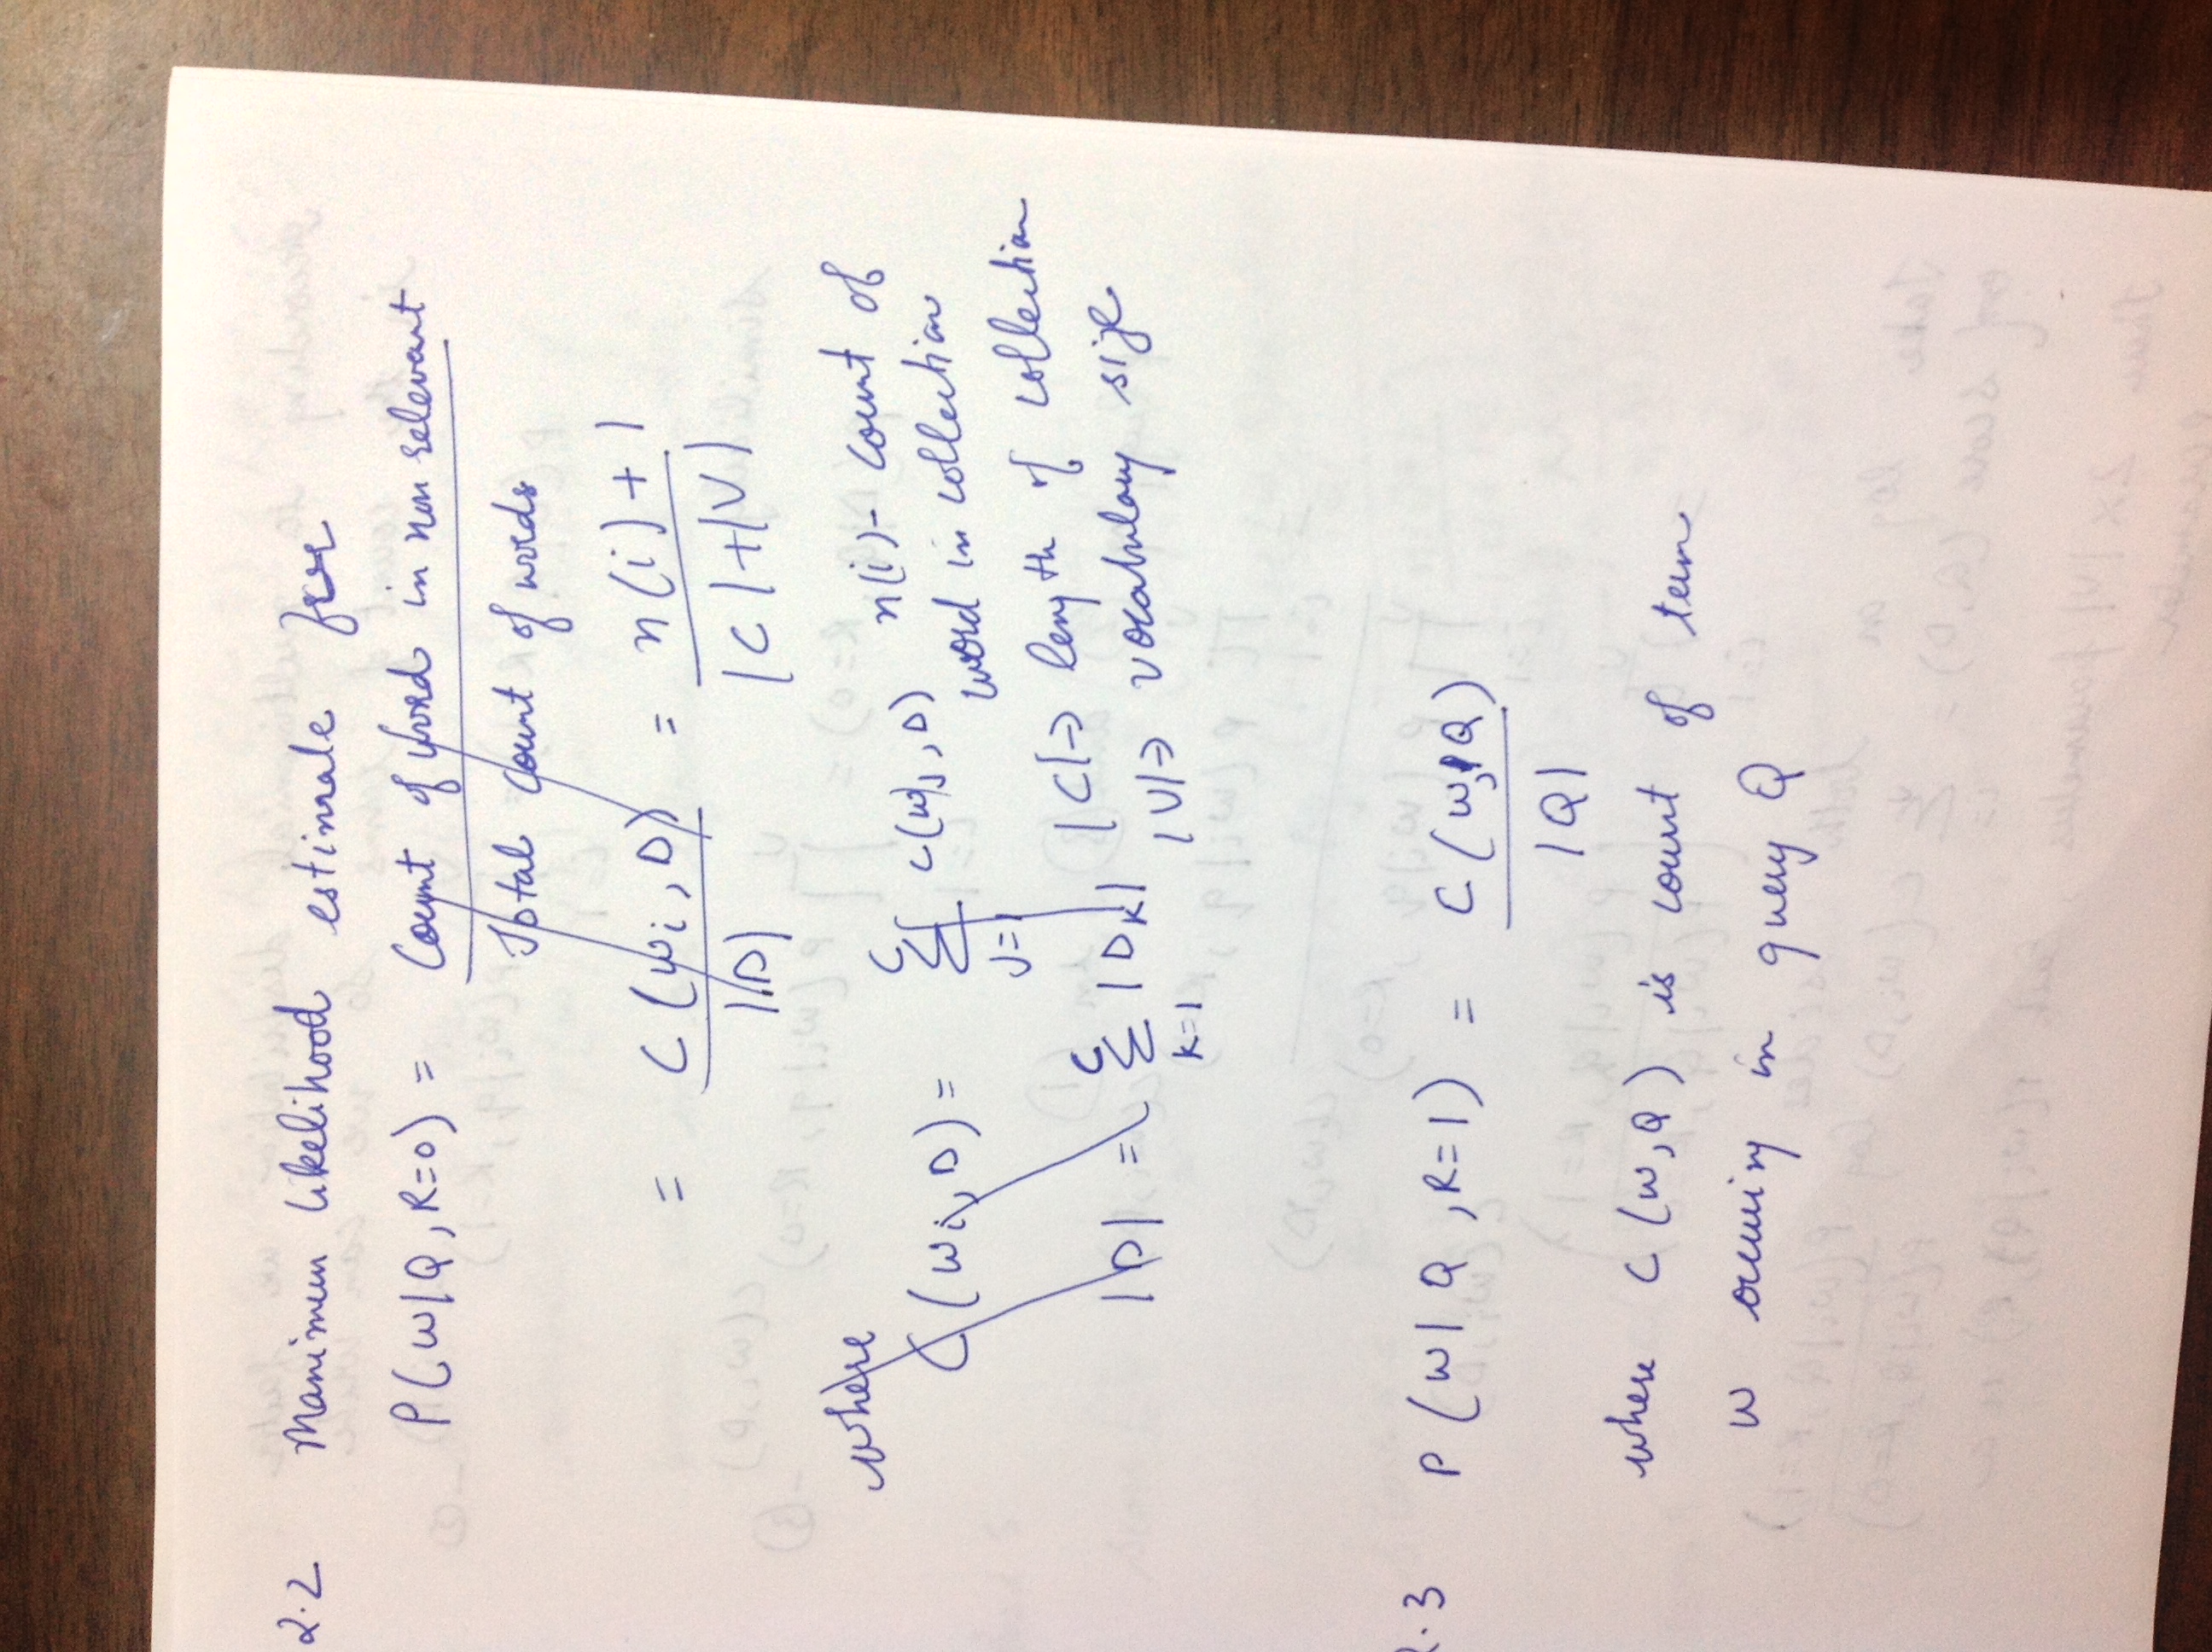 2.2 Maximum likelihood estimate for
P(W|Q, R=0) = Count of word in non relevant
Total count of words
= C(wi, D) / |D| = n(i)+1 / |C|+|V|
where
C(wi, D) = Σ j=1 C c(wj, D)
n(i) - count of
word in collection
|D| = Σ k=1 C |Dk|
|C| → length of collection
|V| → vocabulary size
2.3 P(W|Q, R=1) = C(w, Q) / |Q|
where C(w,Q) is count of term
w occuring in query Q